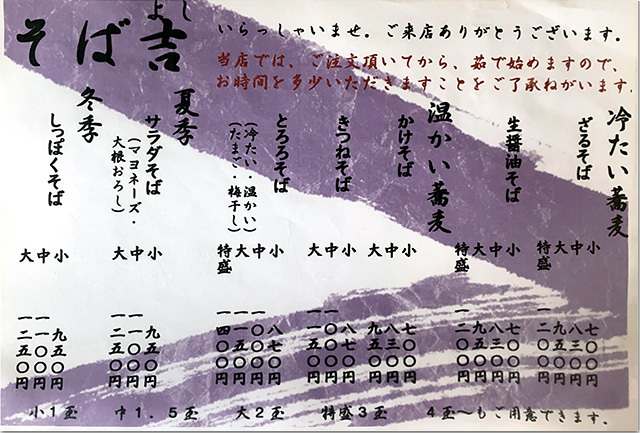 よし
そば吉
いらっしゃいませ。ご来店ありがとうございます。
当店では、ご注文頂いてから、茹で始めますので、
お時間を多少いただきますことをご了承ねがいます。
冷たい蕎麦
ざるそば
小 七〇〇円
中 八三〇円
大 九五〇円
特盛 一二〇〇円
生醤油そば
小 七〇〇円
中 八三〇円
大 九五〇円
特盛 一二〇〇円
温かい蕎麦
かけそば
小 七〇〇円
中 八三〇円
大 九五〇円
きつねそば
小 八七〇円
中 一〇〇〇円
大 一一五〇円
とろろそば
(冷たい・温かい)
(たまご・梅干し)
小 八七〇円
中 一〇〇〇円
大 一一五〇円
特盛 一四〇〇円
夏季
サラダそば
(マヨネーズ・
大根おろし)
小 九五〇円
中 一一〇〇円
大 一二五〇円
冬季
しっぽくそば
小 九五〇円
中 一一〇〇円
大 一二五〇円
小1玉 中1.5玉 大2玉 特盛3玉 4玉~もご用意できます。